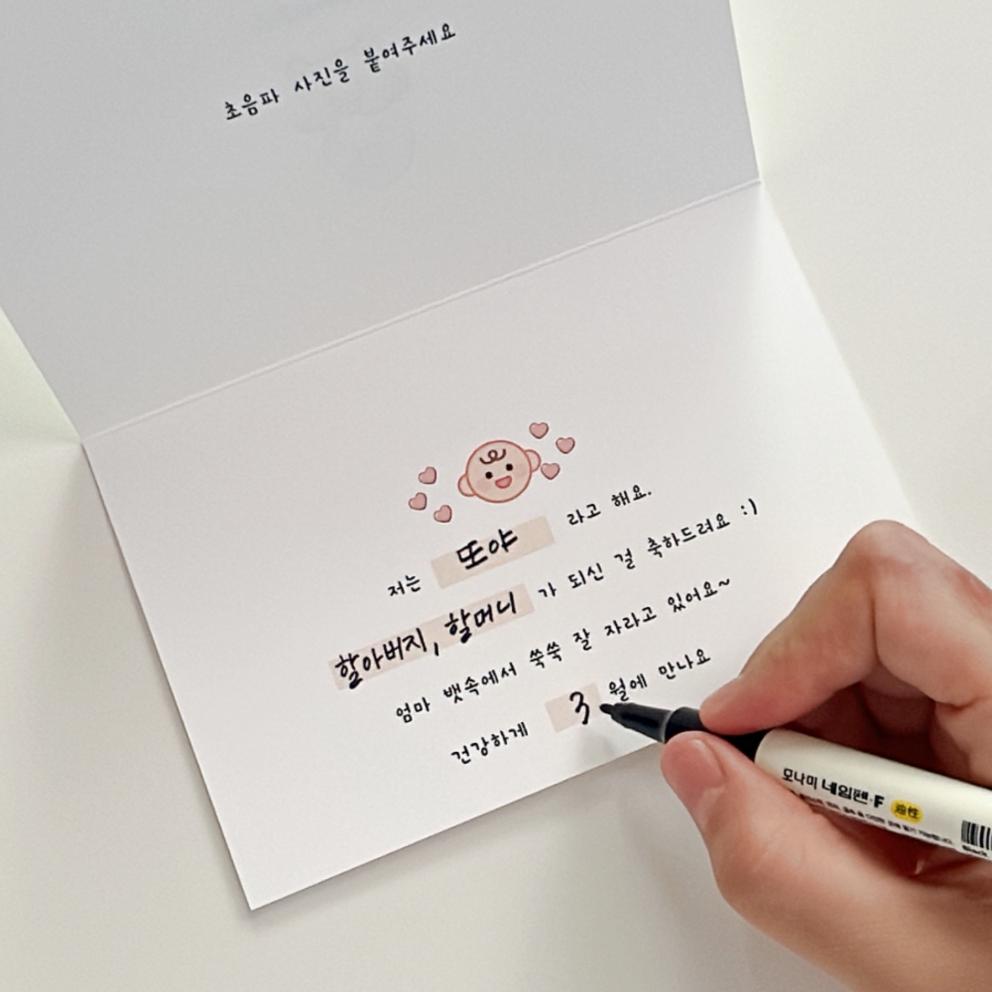 초음파 사진을 붙여주세요
저는 또야 라고 해요.
할아버지, 할머니 가 되신 걸 축하드려요 :)
엄마 뱃속에서 쑥쑥 잘 자라고 있어요~
건강하게 3 월에 만나요
모나미 네임펜·F 油性